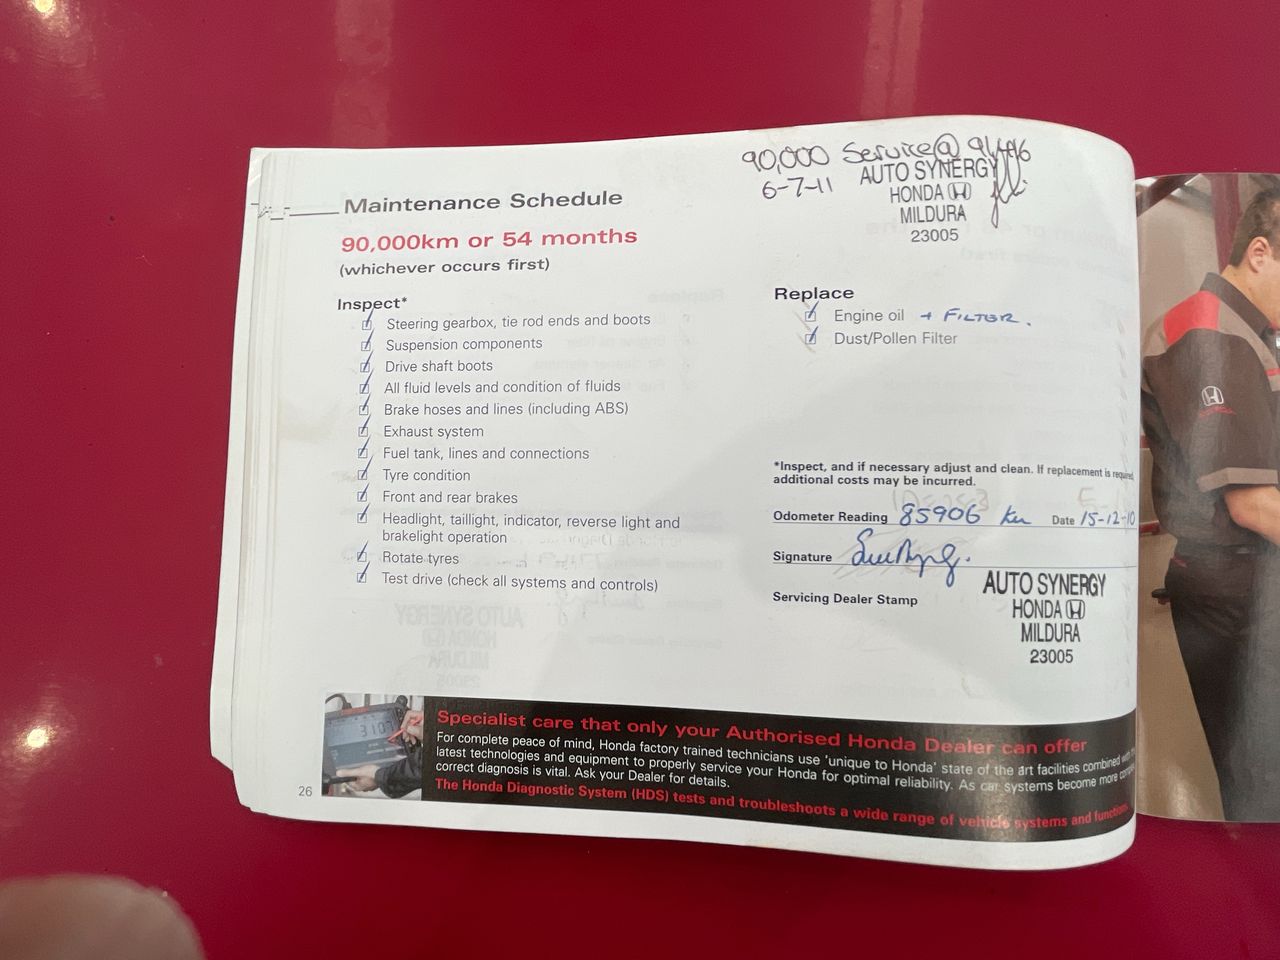 90,000 Service@
6-7-11
AUTO SYNERGY
HONDA
MILDURA
23005
Maintenance Schedule
90,000km or 54 months
(whichever occurs first)
Inspect*
Steering gearbox, tie rod ends and boots
Suspension components
Drive shaft boots
All fluid levels and condition of fluids
Brake hoses and lines (including ABS)
Exhaust system
Fuel tank, lines and connections
Tyre condition
Front and rear brakes
Headlight, taillight, indicator, reverse light and
brakelight operation
Rotate tyres
Test drive (check all systems and controls)
Replace
Engine oil + FILTER.
Dust/Pollen Filter
*Inspect, and if necessary adjust and clean. If replacement is required,
additional costs may be incurred.
Odometer Reading 85906 km Date 15-12-10
Signature
Servicing Dealer Stamp
AUTO SYNERGY
HONDA
MILDURA
23005
Specialist care that only your Authorised Honda Dealer can offer
For complete peace of mind, Honda factory trained technicians use 'unique to Honda' state of the art facilities combined with
latest technologies and equipment to properly service your Honda for optimal reliability. As car systems become more
correct diagnosis is vital. Ask your Dealer for details.
The Honda Diagnostic System (HDS) tests and troubleshoots a wide range of vehicle systems and functions
26